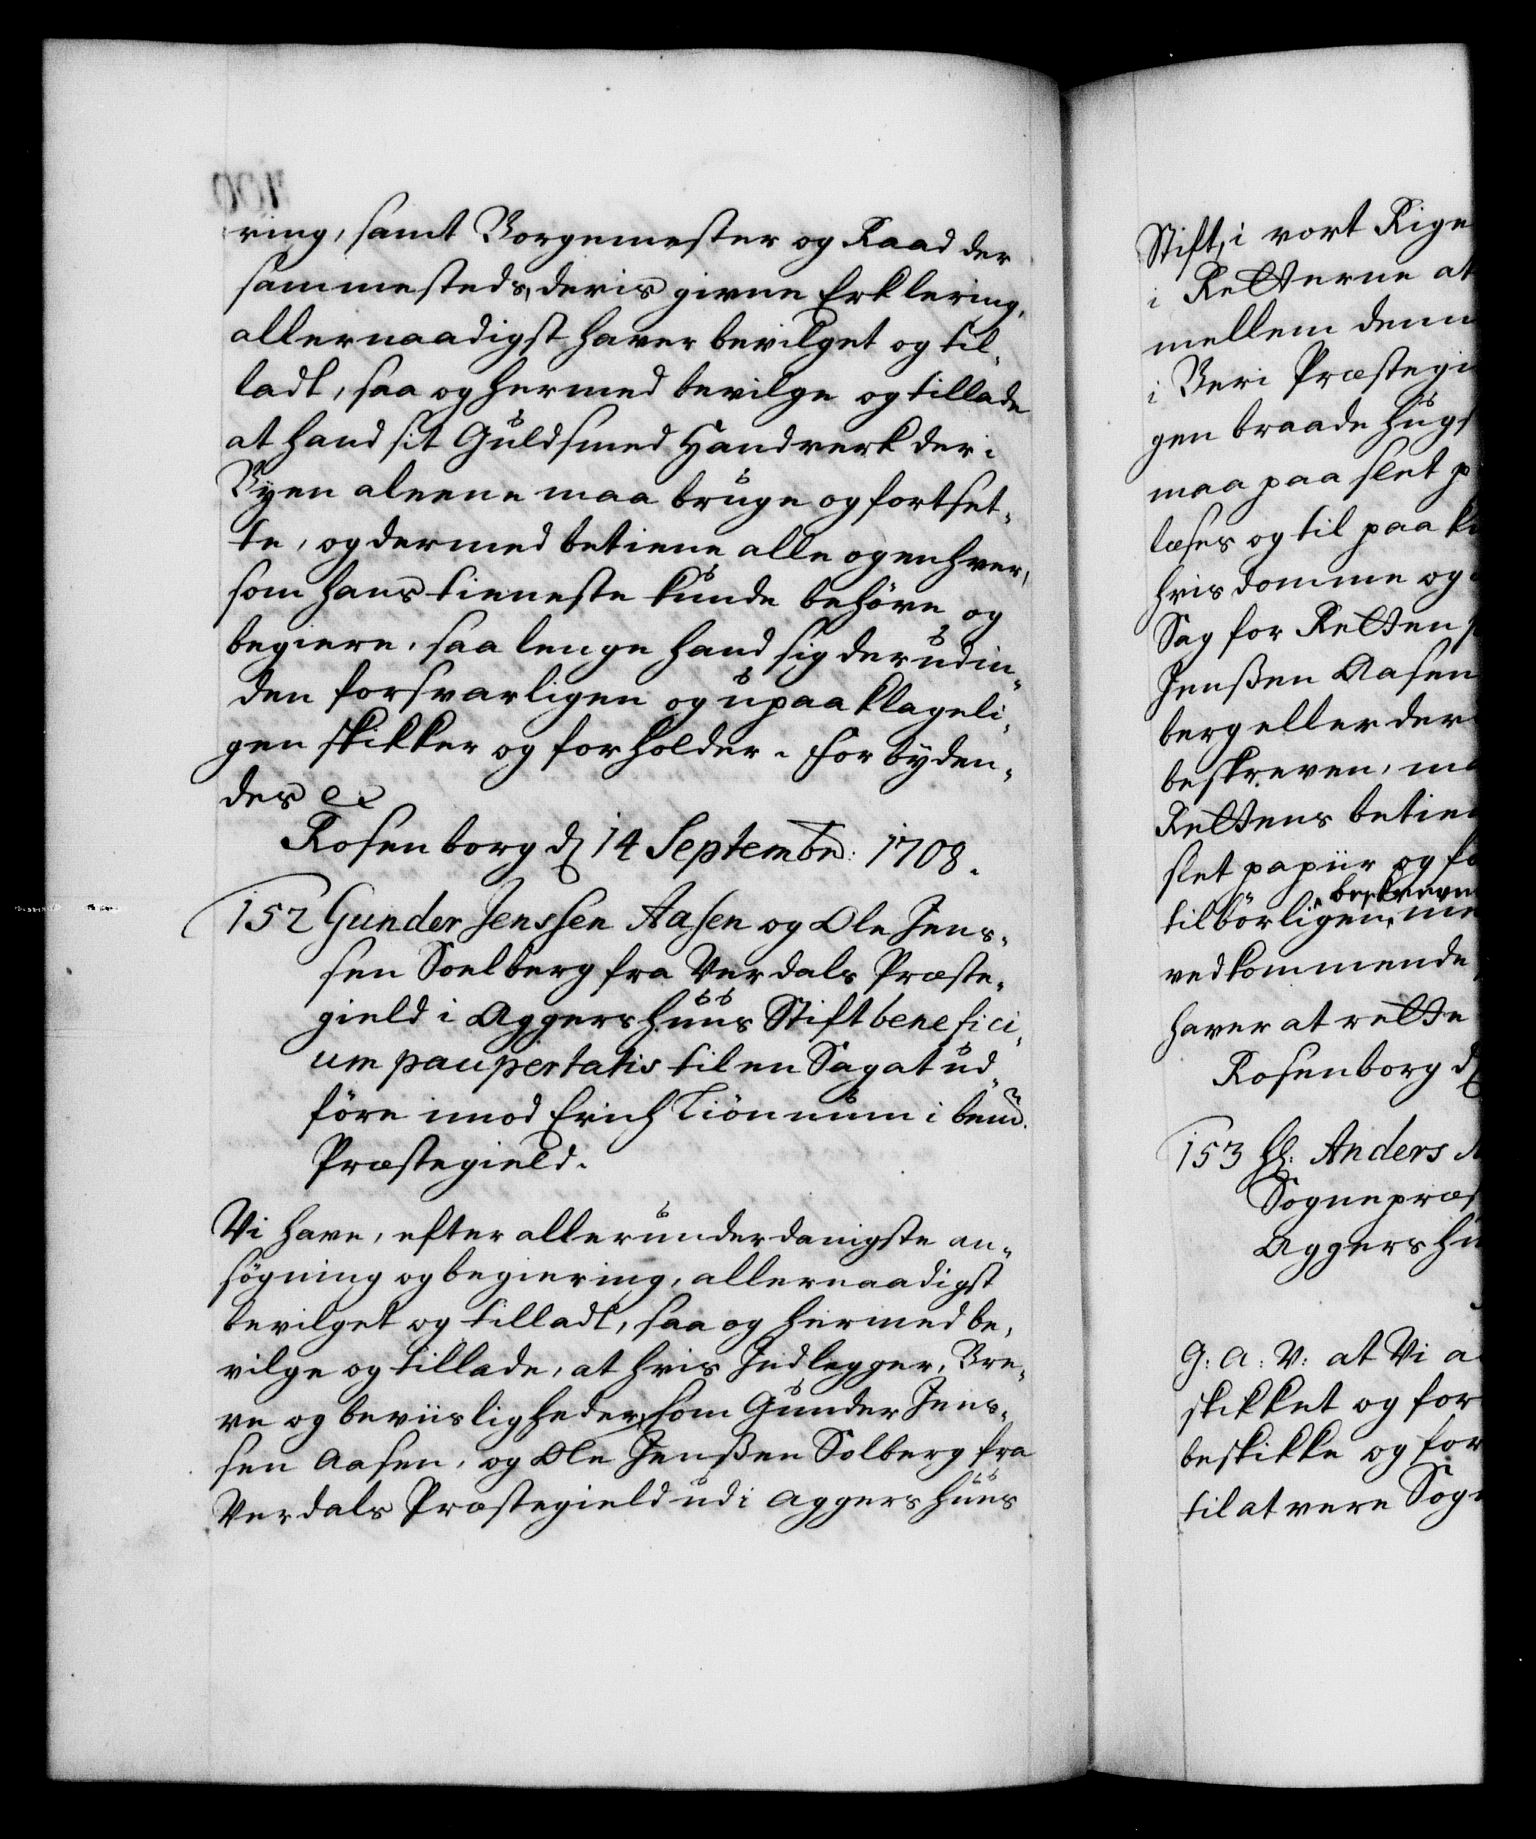 ring, samt Borgemester og Raad der
sammesteds, deris givne Erklering,
allernaadigst haver bevilget og til-
ladt, saa og hermed bevilge og tillade
at hand sit Guldsmed Handverk der i
Byen aleene maa bruge og fortset-
te, og dermed betiene alle og enhver,
som hans tieneste kunde behöve og
begiere, saa lenge hand sig derudin-
den forsvarligen og upaaklageli-
gen skikker og forholder. Forbyden-
des &c
Rosenborg d 14 Septembr: 1708.
152 Gunder Jenssen Aasen og Ole Jens-
sen Soelberg fra Verdals Præste-
gield i Aggershuus Stift benefici-
um paupertatis til en Sag at ud-
före imod Erich Tiönnum i bem.
Præstegield.
Vi have, efter allerunderdanigste an-
søgning og begiering, allernaadigst
bevilget og tilladt, saa og hermed be-
vilge og tillade, at hvis Indlegger, Bre-
ve og beviisligheder, som Gunder Jens-
sen Aasen, og Ole Jenssen Solberg fra
Verdals Præstegield udi Aggershuus
Stift, i vort Rige
i Retterne at
mellem dem
i Beri Præstegi
gen braade hugst
maa paa slet p
læses og til paa k
hvis domme og
Sag for Retten
Jenssen Aasen
berg eller der
beskreven, m
Rettens betien
slet papiir og fo
beskreven
tilbörligen, me
vedkommende
haver at rette
Rosenborg d
153 Hr: Anders
Sognepræs
Aggershu
G: A: V: at Vi a
skikket og for
beskikke og for
til at vere Sogn